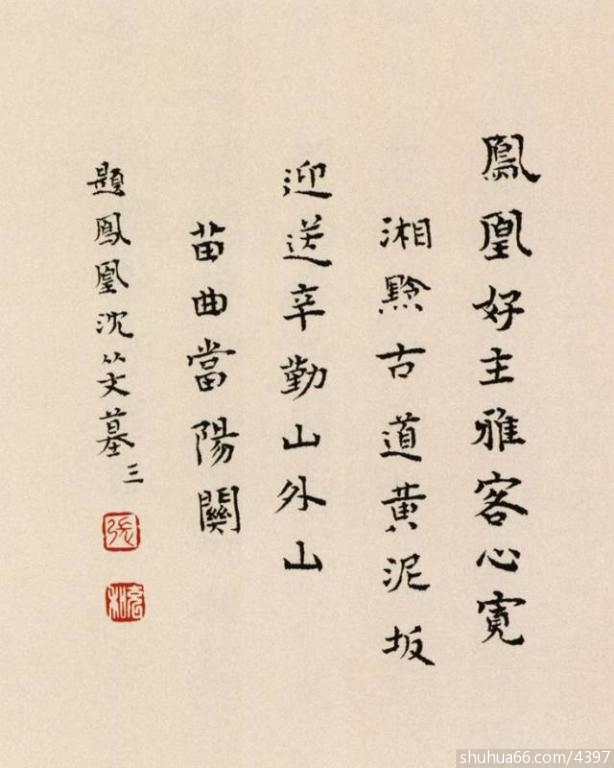 鳳凰好主雅客心寬
湘黔古道黃泥坂
迎送辛勤山外山
苗曲當陽關
題鳳凰沈从文墓三
張
充和
shuhua66.com/4397